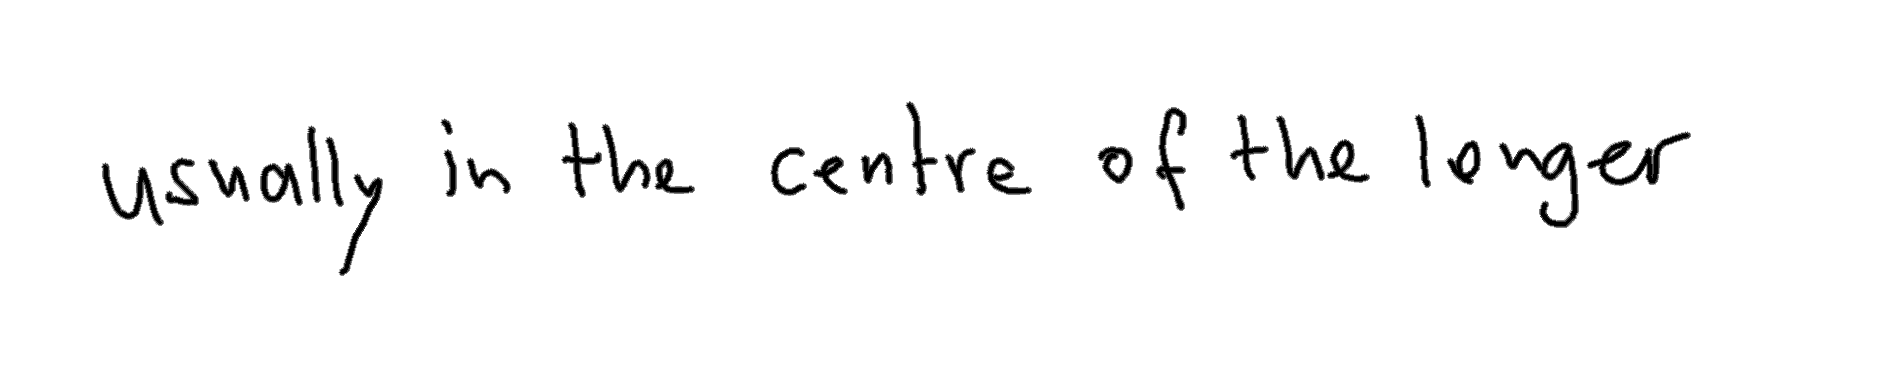 usually in the centre of the longer